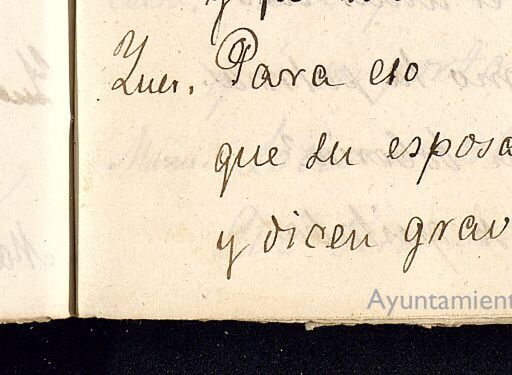 Para eso
que su esposa
y dicen grav
Ayuntamient